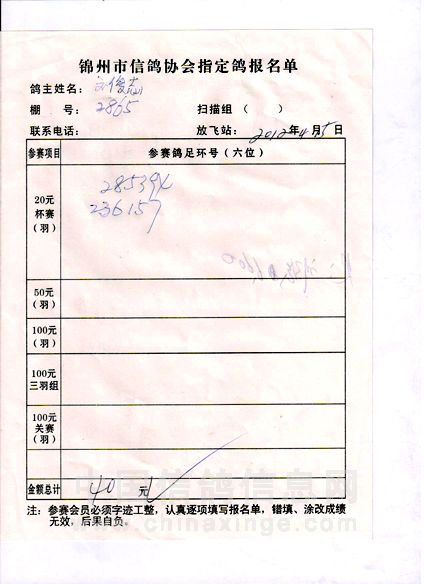 锦州市信鸽协会指定鸽报名单
鸽主姓名：刘俊志
棚 号：2805 扫描组（ ）
联系电话： 放飞站：2012年4月15日
参赛项目 参赛鸽足环号（六位）
20元
杯赛
（羽）
236157
50元
（羽）
100元
（羽）
100元
三羽组
100元
关赛
（羽）
金额总计 40元
注：参赛会员必须字迹工整，认真逐项填写报名单，错填、涂改成绩
无效，后果自负。
中国信鸽信息网
www.chinaxinge.com